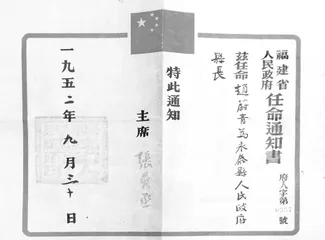 福建省
人民政府
任命通知書
府人字第 號
茲任命趙蔚青為永泰縣人民政府
縣長
特此通知
主席
張鼎丞
一九五二年九月三十日